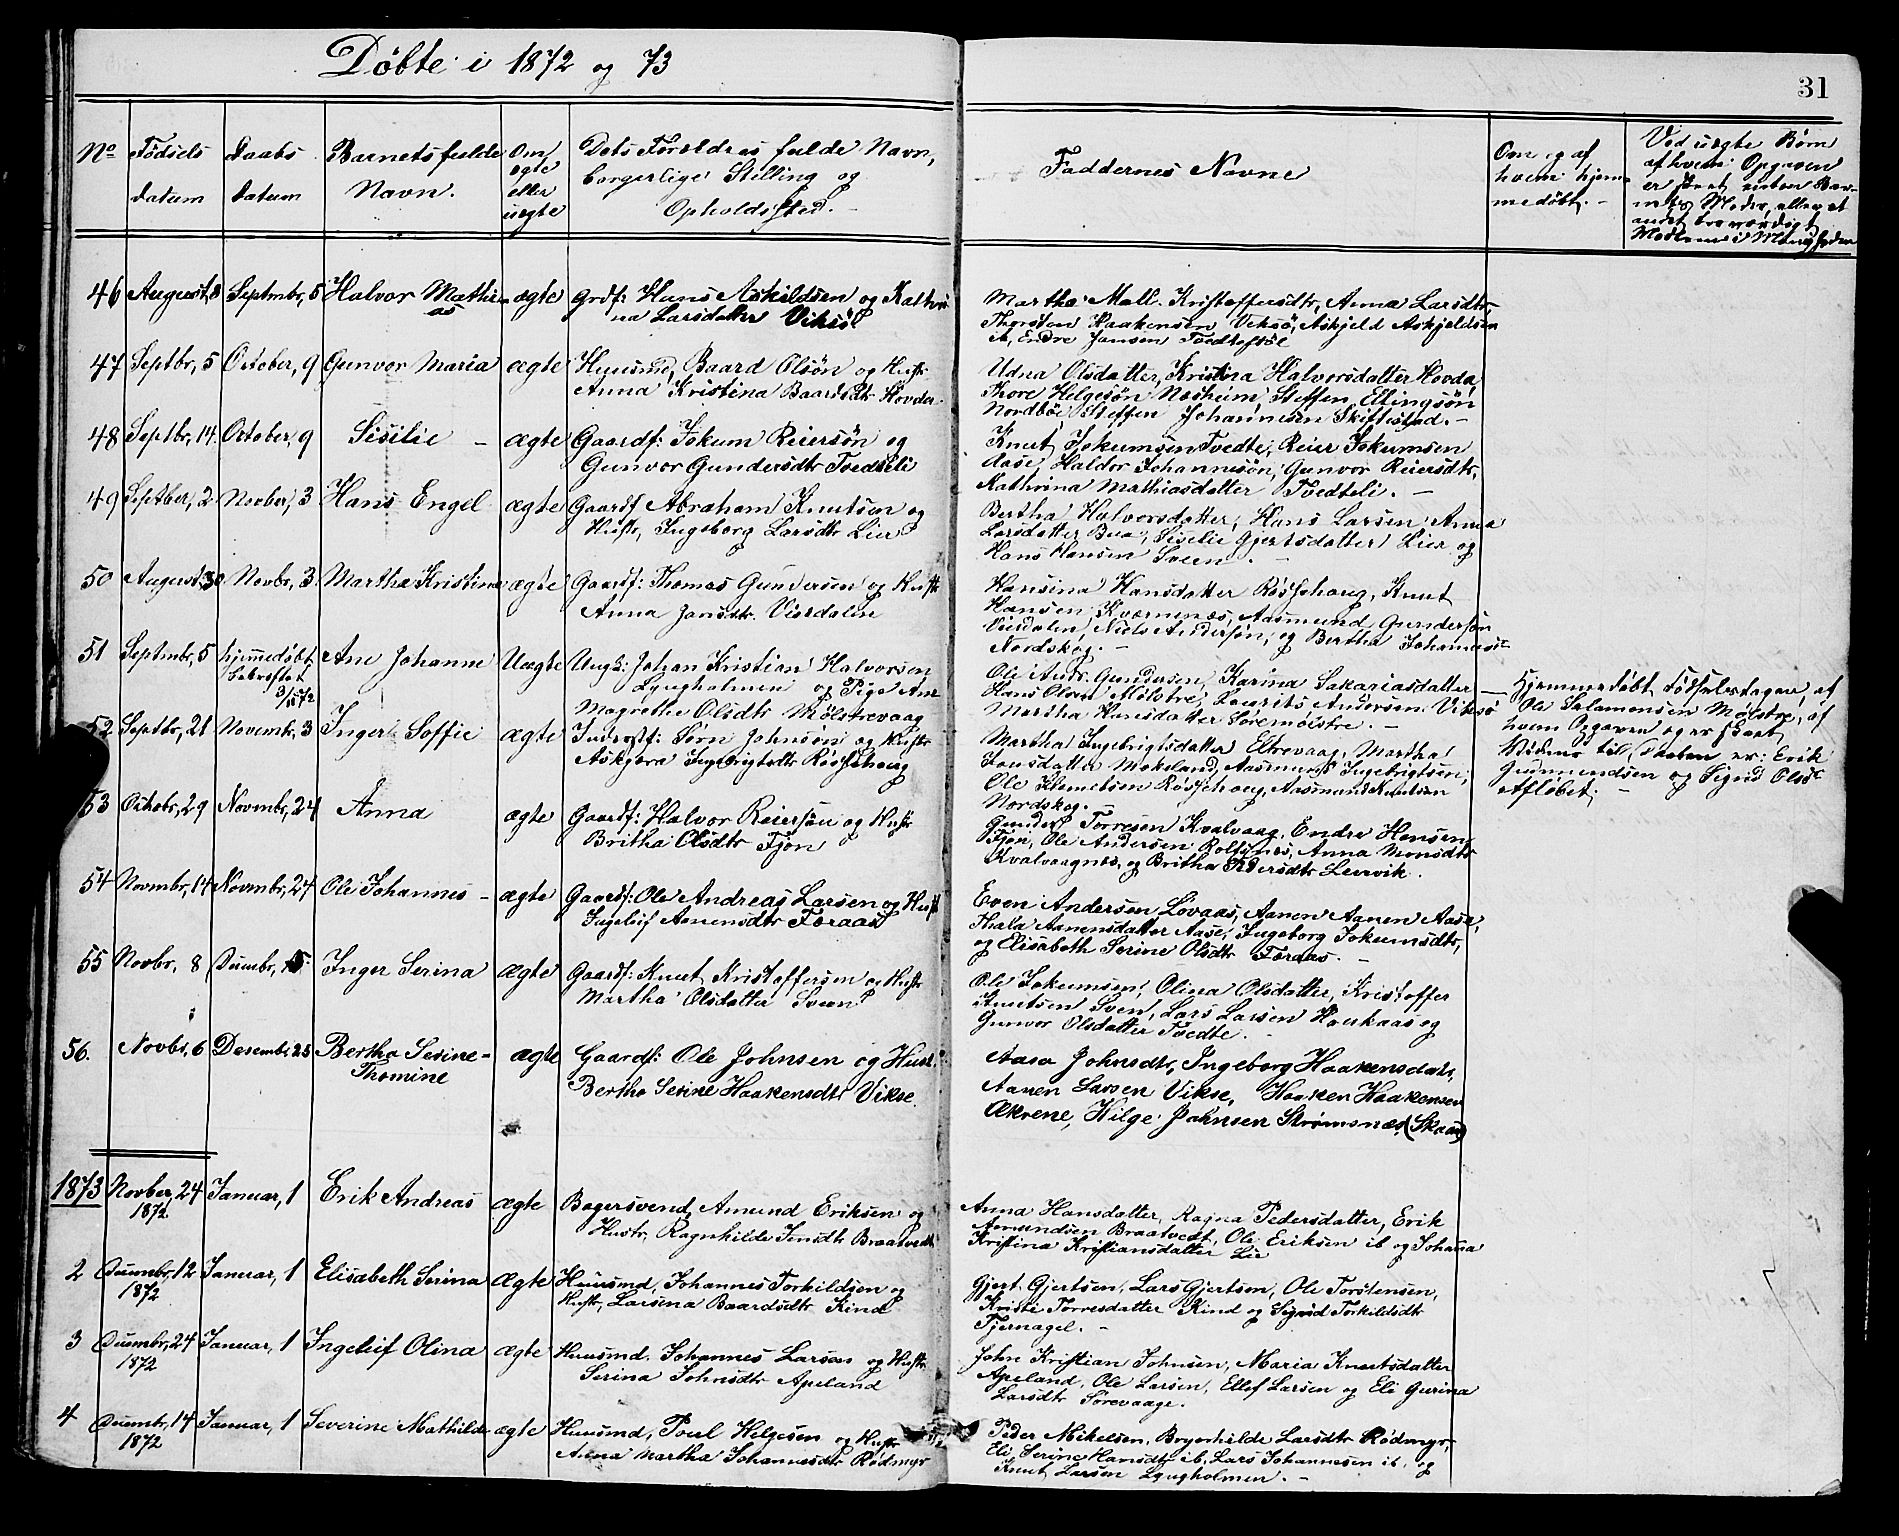 Döbte i 1872 og 73
31
No Födsels datum
Daabs datum
Barnets fulde Navn.
Om ægte eller uægte
Dets Forældres fulde Navn, borgerlige Stilling og Opholdssted.
Faddernes Navne
Om og af hvem hjemmedöbt.
Ved uægte Börn af hvem Opgaven er skeet
46 August, 8 Septmbr, 5 Halvor Mathias ægte Grdf: Hans Askildsen og Kathrina Larsdatter Viksö
Martha Mall. Kristoffersdtr, Anna Larsdtr,
Thorsten Haakensen Veksö, Askjeld Askjeldsen
Endre Jansen Tvedteftöl
47 Septbr, 5 October, 9 Gunvor Maria ægte Huusmd, Baard Olsön og Hustr
Anna Kristina Baardsdtr Hovda.
Udna Olsdatter, Kristina Halvorsdatter Hovda,
Thore Helgesön Næsheim, Steffen Ellingsön
Nordböe, Steffen Johannesen Skiftestad.
48 Septbr, 14 October, 9 Sisilie ægte Gaardf: Jokum Reiersön og
Gunvor Gundersdtr Tvedteli
Knut Jokumsen Tvedte, Reier Jokumsen
Aase, Haldor Johannesön, Gunvor Reiersdtr,
Kathrina Mathiasdatter Tvedteli.
49 Septber, 2 Novber, 3 Hans Engel ægte Gaardf Abraham Knutsen og
Hustr, Ingeborg Larsdtr Lier
Bertha Halvorsdatter, Hans Larsen, Anna
Larsdatter Bua, Siselie Gjertsdatter Lier og
Hans Hansen Sveen.
50 August, 30 Novbr, 3 Martha Kristina ægte Gaardf: Thomas Gundersen og Hustr
Anna Jansdtr. Visdalen
Hansina Hansdatter Rössehaug, Knut
Hansen Kværnenæs, Aasmund Gundersön
Visdalen, Niels Andersön, og Bertha Johannesdtr
Nordskog.
51 Septmbr, 5 hjemmedöbt, bekræftet 3/11 72 Ane Johanne Uægte Ungk: Johan Kristian Halvorsen
Lyngholmen og Pige Ane
Magrethe Olsdtr Mölstrevaag
Ole Andr. Gundersen, Karina Sakariasdatter
Hans Olsen Mölstre, Laurits Andersen Viksö
Martha Hansdatter Söremölstre.
Hjemmedöbt Födselsdagen, af
Ole Salamonsen Mölstre, af
hvem Opgaven og er skeet.
Vidner til Daaben er: Erik
Gudmundsen og Sigrid Olsdtr
Aflöbet,
52 Septbr, 21 Novembr, 3 Inger Soffie ægte Gaardf: Sörn Johnsön og Hustr
Askjera Ingebrigtsdtr Rössehaug
Martha Ingebrigtsdatter Eltrevaag, Martha
Jonsdatter Mokeland, Aasmund Ingebrigtsen,
Ole Klemetsen Rössehaug, Aasmund Knutsen
Nordskog.
53 Octobr, 29 Novembr, 24 Anna ægte Gaardf: Halvor Reiersön og Hustr
Britha Olsdtr Fjon
Gunder Torresen Kvalvaag, Endre Hansen
Fjon, Ole Andersen Rolfsnes, Anna Monsdtr
Kvalvaagnes, og Britha Pedersdtr Leirvik.
54 Novmbr, 14 Novmbr, 24 Ole Johannes ægte Gaardf: Ole Andreas Larsen og Hustr
Ingeleif Aanensdtr Foraas
Even Andersen Lovaas, Aanen Aanen Aase,
Thala Aanensdatter Aase, Ingeborg Jokumsdtr,
og Elisabeth Serine Olsdtr Foraas.
55 Novbr, 8 Desmbr, 15 Inger Serina ægte Gaardf: Knut Kristoffersen og Hustr
Martha Olsdatter Sveen
Ole Jokumsen, Olina Olsdatter, Kristoffer
Knutsen Sven, Lars Larsen Haukaas og
Gunvor Olsdatter Tvedte.
56. Novbr, 6 Desembr. 25 Bertha Serine Thomine ægte Gaardf: Ole Johnsen og Hust.
Bertha Serine Haakensdtr Vikse.
Aasa Johnsdtr, Ingeborg Haakensdatr,
Aanen Larsen Vikse, Haaken Haakensen
Økrene, Hilge Johnsen Strömsnæs, (Skaar)
1873 Novber, 24 1872 Januar, 1 Erik Andreas ægte Bagersvend Amund Eriksen og
Hustr, Ragnhilde Jensdtr Braatvedt
Anna Hansdatter, Ragna Pedersdatter, Erik
Amundsen Braatvedt, Ole Eriksen ib og Johana
Kristina Kristiansdatter Lie
2 Desmbr, 12 1872 Januar, 1 Elisabeth Serina ægte Huusmd, Johannes Torkildsen og
Hustr, Larsena Baardsdtr Kind
Gjert Gjertsen, Lars Gjertsen, Ole Torstensen,
Kristi Torresdatter Kind og Sigrid Torkildsdtr
Tjernagel.
3 Desmbr, 24 1872 Januar, 1 Ingeleif Olina ægte Huusmd. Johannes Larsen og Hustr
Serina Johnsdtr Apeland
John Kristian Johnsen, Maria Knutsdatter
Apeland, Ole Larsen, Ellef Larsen og Eli Gurina
Larsdtr Sörevaage.
4 Desmbr, 14 1872 Januar, 1 Severine Mathilde ægte Huusmd, Poul Helgesen og Hustr
Anna Martha Johannesdtr Rödmyr
Peder Mikelsen, Brynhilde Larsdtr Rödmyr,
Eli Serine Hansdtr ib, Lars Johannesen ib, og
Knut Larsen Lyngholmen.